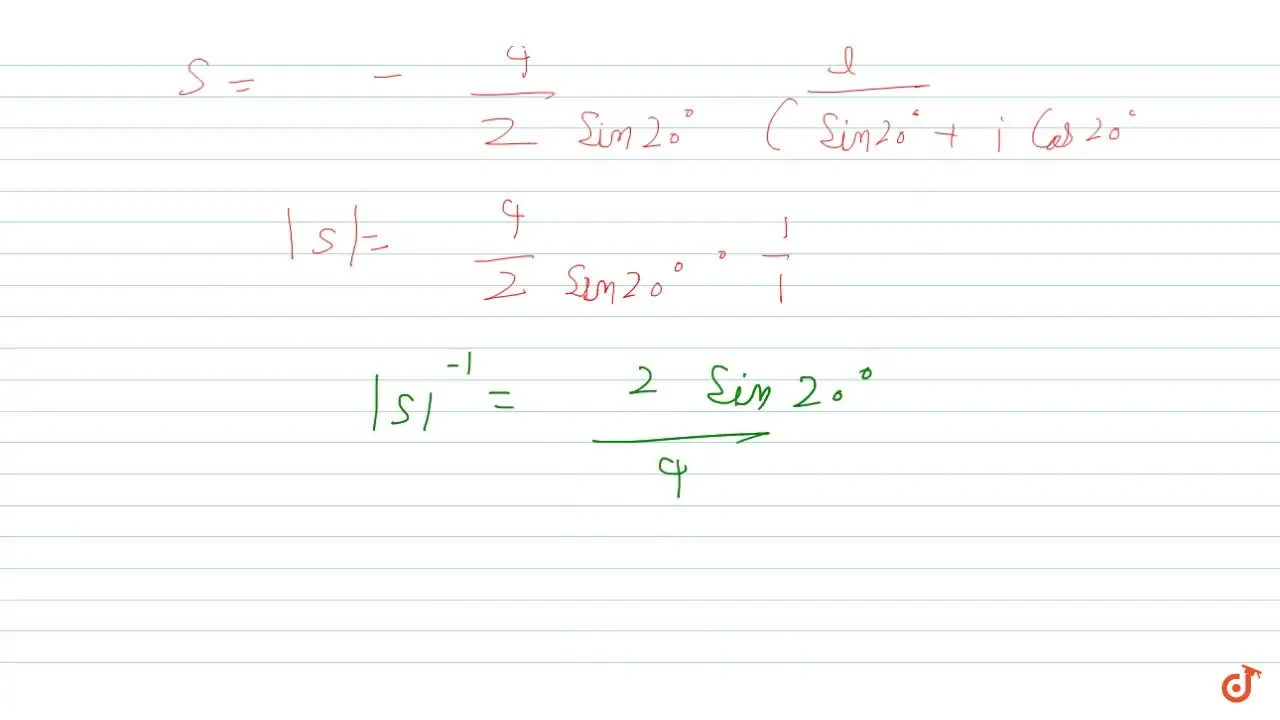 S = - 9/2 Sin20° 1/(Sin20° + i Cos20°
|S| = 9/2 Sin20° · 1/1
|S|⁻¹ = 2 Sin20°/9